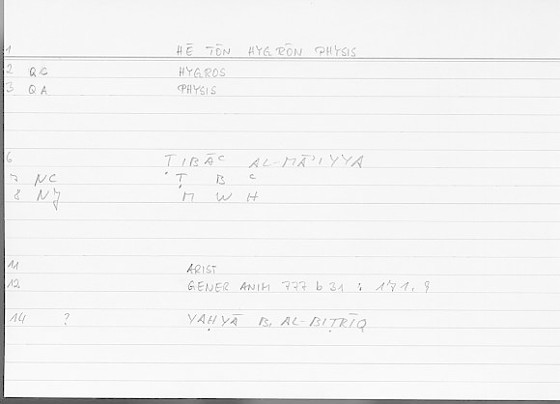 1 HĒ TŌN HYGRŌN PHYSIS
2 QG HYGROS
3 QA PHYSIS
6 ṬIBĀᶜ AL-MĀʾIYYA
7 NC Ṭ B ᶜ
8 NJ M W H
11 ARIST
12 GENER ANIM 777 b 31 : 171.9
14 ? YAḤYĀ B. AL-BIṬRĪQ